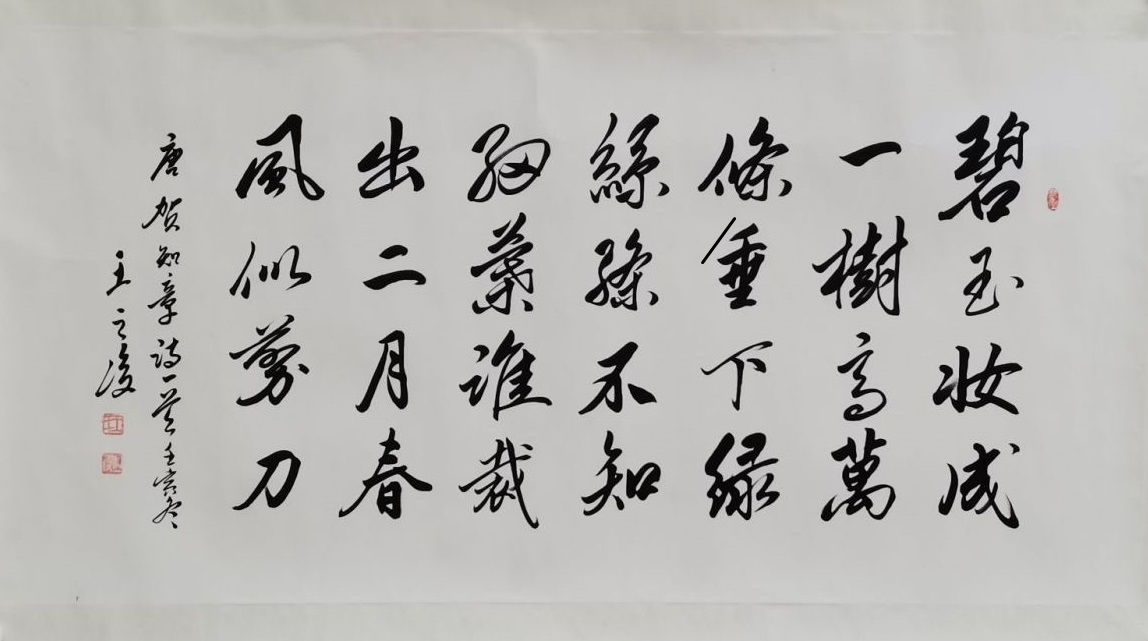 碧玉妆成
一樹高萬
條垂下绿
絲絛不知
細葉誰裁
出二月春
風似剪刀
唐贺知章诗一首壬寅冬
王之俊